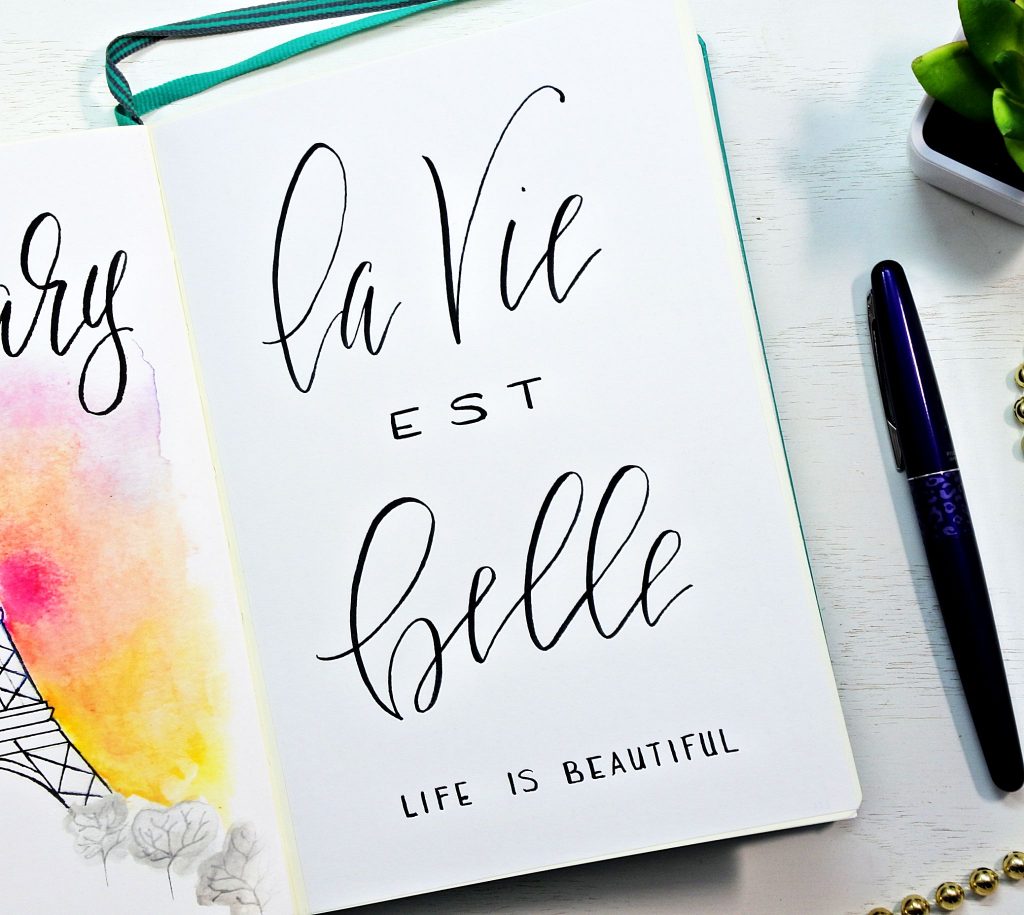 la Vie
EST
belle
LIFE IS BEAUTIFUL